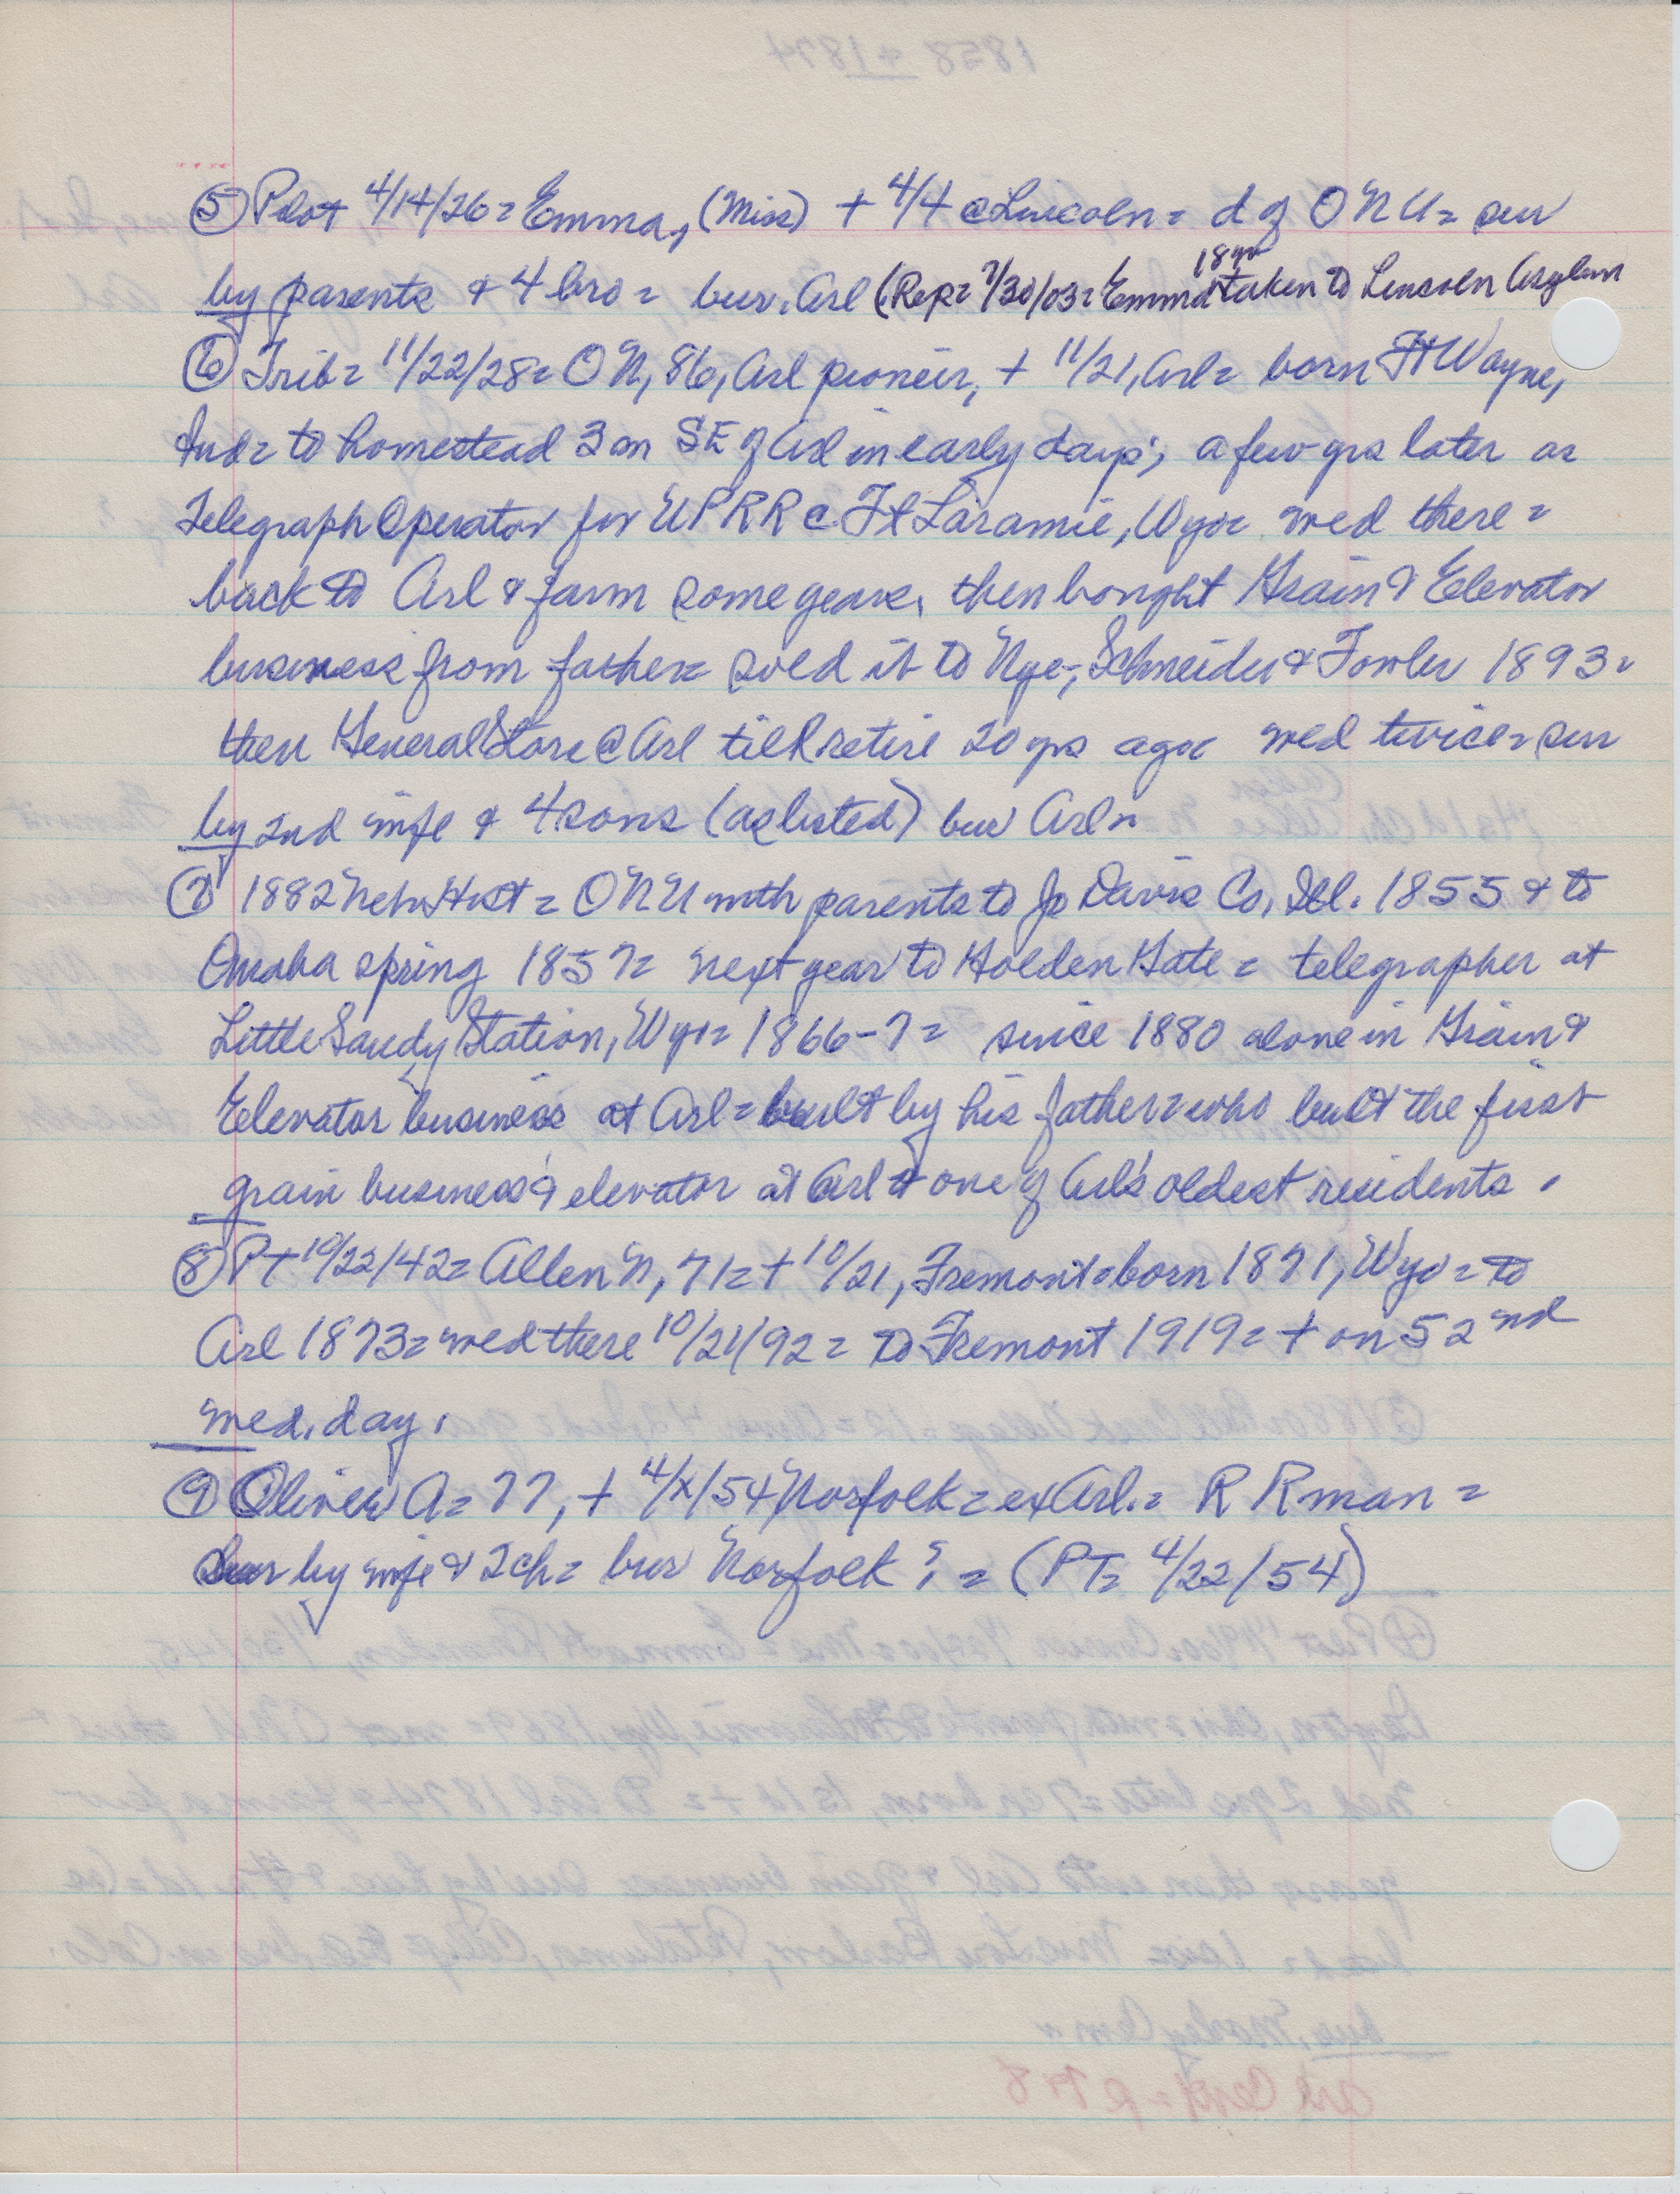 ⑤ Pilot 4/14/26 = Emma, (Miss) + 4/4 @ Lincoln = d of O N U = sur
by parents & 4 bro = bur. Arl (Rep = 7/30/03 = Emma 18 yr taken to Lincoln Asylum
⑥ Trib = 11/22/28 = O N, 86, Arl pioneer, + 11/21, Arl = born Ft Wayne,
Ind = to homestead 3 m SE of Arl in early days; a few yrs later as
Telegraph Operator for UPRR @ Ft Laramie, Wyo = wed there =
back to Arl & farm some years, then bought Grain & Elevator
business from father = sold it to Nye-, Schneider & Fowler 1893 =
then General Store @ Arl till retire 20 yrs ago = wed twice = sur
by 2nd wife & 4 sons (as listed) bur Arl =
⑦ 1882 Neb. Hist = O N U with parents to Jo Davis Co, Ill. 1855 & to
Omaha spring 1857 = next year to Golden Gate = telegrapher at
Little Sandy Station, Wyo = 1866-7 = since 1880 alone in Grain &
Elevator business at Arl = built by his father = who built the first
grain business & elevator at Arl & one of Arl's oldest residents.
⑧ PT 10/22/42 = Allen N, 71 = + 10/21, Fremont = born 1871, Wyo = to
Arl 1873 = wed there 10/21/92 = to Fremont 1919 = + on 52nd
wed. day.
⑨ Oliver A = 77, + 4/x/54 Norfolk = ex Arl. = R R man =
Sur by wife & 2 ch = bur Norfolk ? = (PT = 4/22/54)